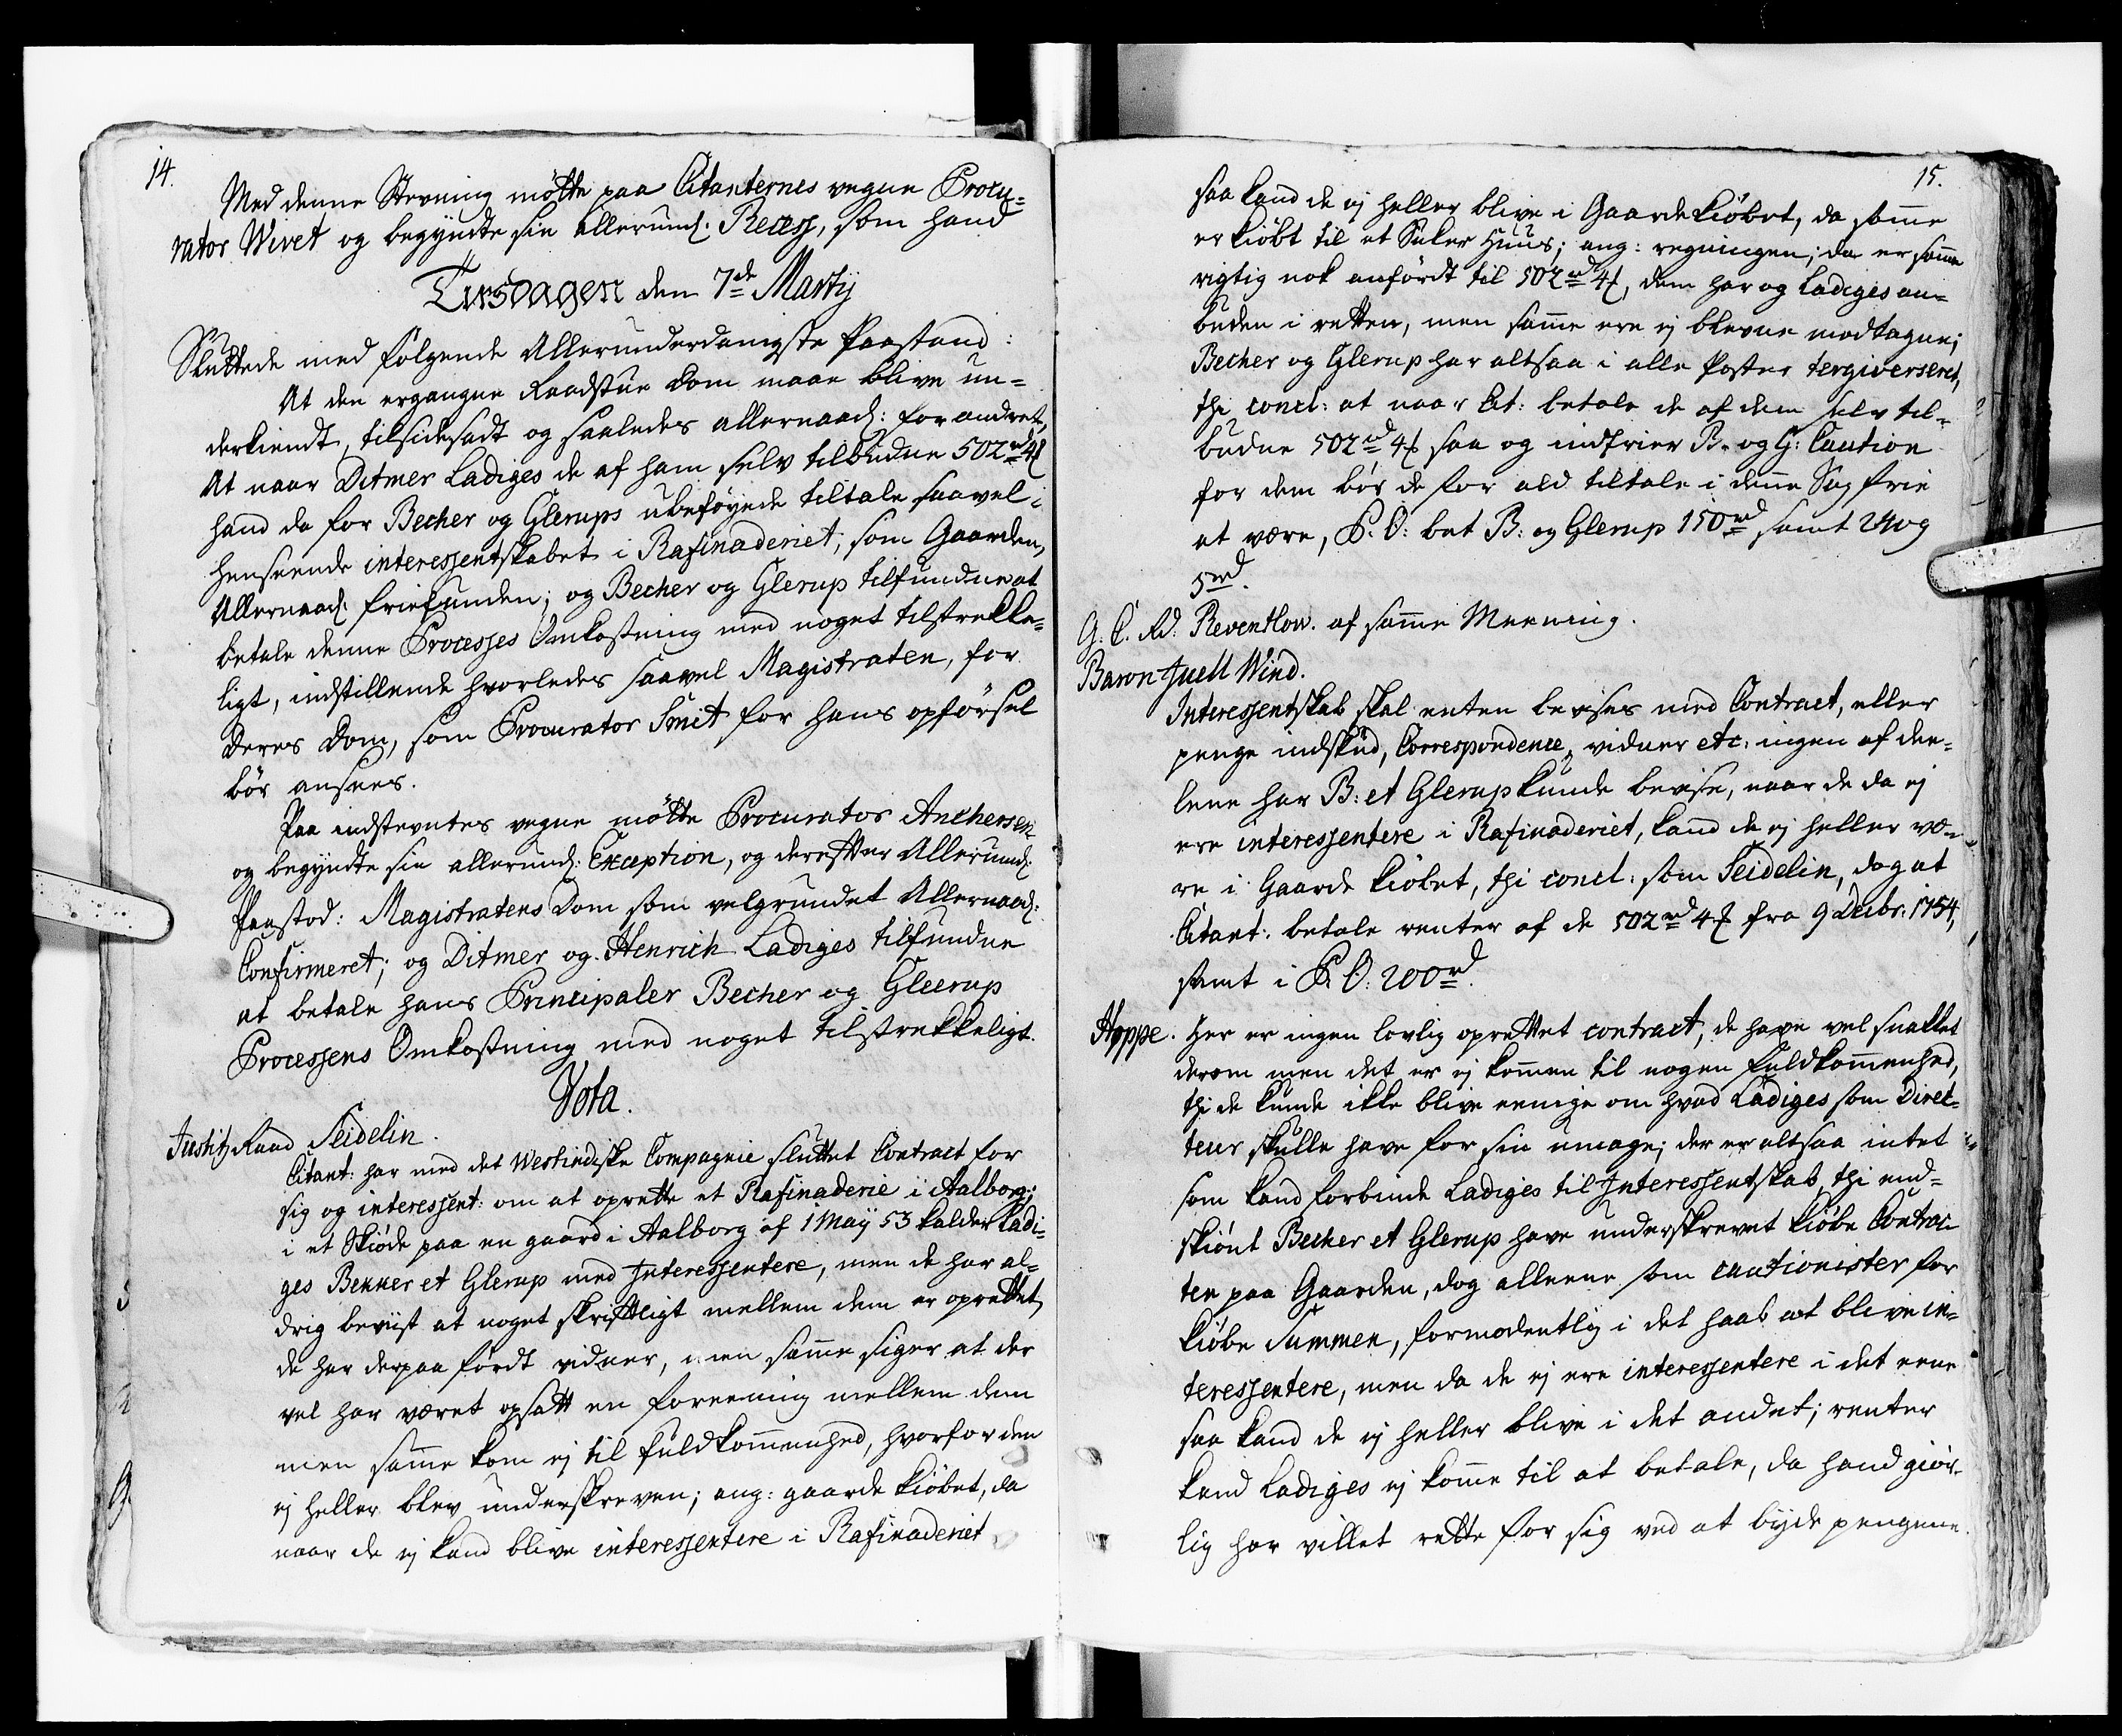 14.
Med denne Stevning mötte paa Citanternes vegne Procu=
rator Wivet og begyndte sin allerund: Recess, som hand
Tirsdagen den 7de Martij
Sluttede med følgende Allerunderdanigste Paastand:
At den ergangne Raadstue Dom maae blive un=
derkiendt, tilsidesadt og saaledes allernaad: forandret,
At naar Ditmer Ladiges de af ham selv tilbudne 502rd 4ß
hand da for Becher og Glerups ubeföyede tiltale saavel i
henseende interessentskabet i Rafinaderiet, som Gaarden,
Allernaad: friefunden; og Becher og Glerup tilfunden at
betale denne Processes Omkostning med noget tilstrekke=
ligt, indstillende hvorledes saavel Magistraten, for
deres Dom, som Procurator Smit for hans opförsel
bör ansees.
Paa indstevntes vegne mötte Procurator Anchersen
og begyndte sin allerund: Exception, og derefter Allerund:
Paastod: Magistratens Dom som velgrundet Allernaad:
Confirmeret; og Ditmer og Henrich Ladiges tilfundne
at betale hans Principaler Becher og Gleerup
Processens Omkostning med noget tilstrekkeligt.
Vota.
Justitz Raad Seidelin.
Citant: har med det Westindiske Compagnie sluttet Contract for
sig og interessent: om at oprette et Rafinaderie i Aalborg;
i et Skiöde paa en gaard i Aalborg af 1 Maij 53 kalder Ladi=
ges Bekker et Glerup med Interessentere, men de har al=
drig beviist at noget skriftligt mellem dem er oprettet,
de har derpaa fördt vidner, men samme siger at der
vel har været opsatt en foreening mellem dem
men samme kom ej til fuldkommenhed, hvorfor den
ej heller blev underskreven; ang: gaarde kiöbet, da
naar de ej kand blive interessentere i Rafinaderiet
15.
saa kand de ej heller blive i Gaardekiöbet, da samme
er kiöbt til et Suker Huus; ang: regningen; da er samme
rigtig nok anfördt til 502rd 4ß, dem har og Ladiges an=
buden i retten, men samme ere ej blevne modtagne;
Becher og Glerup har altsaa i alle Poster tergiverseret,
thi concl: at naar Cit: betale de af dem selv til=
budne 502rd 4ß saa og indfrier B. og G: Caution
for dem bör de for ald tiltale i denne Sag frie
at være, P. O: bet B: og Glerup 150rd samt
5rd.
G. C. Rd: Reventlow. af samme Meening.
Baron Juell Wind.
Interessentskab skal enten bevises med Contract, eller
penge indskud, Correspondence, vidner etc: ingen af dee=
lene har B: et Glerup kunde bevise, naar de da ej
ere interessentere i Rafinaderiet, kand de ej heller væ=
re i Gaarde kiöbet, thi concl: som Seidelin, dog at
Citant: betale renter af de 502rd 4ß fra 9 Decbr: 1754,
samt i P. O: 200rd.
Hoppe. Her er ingen lovlig oprettet contract, de have vel snakket
derom men det er ej kommen til nogen fuldkommenhed,
thi de kunde ikke blive eenige om hvad Ladiges som Direc=
teur skulle have for sin umage; der er altsaa intet
som kand forbinde Ladiges til Interessentskab, thi end=
skiönt Becher et Glerup have underskrevet kiöbe Contrac=
ten paa Gaarden, dog alleene som cautionister for
kiöbe Summen, formodentlig i det haab at blive in=
teressentere, men da de ej ere interessentere i det eene
saa kand de ej heller blive i det andet; renter
kand Ladiges ej komme til at betale, da hand giör=
lig har villet rette for sig ved at byde pengene.